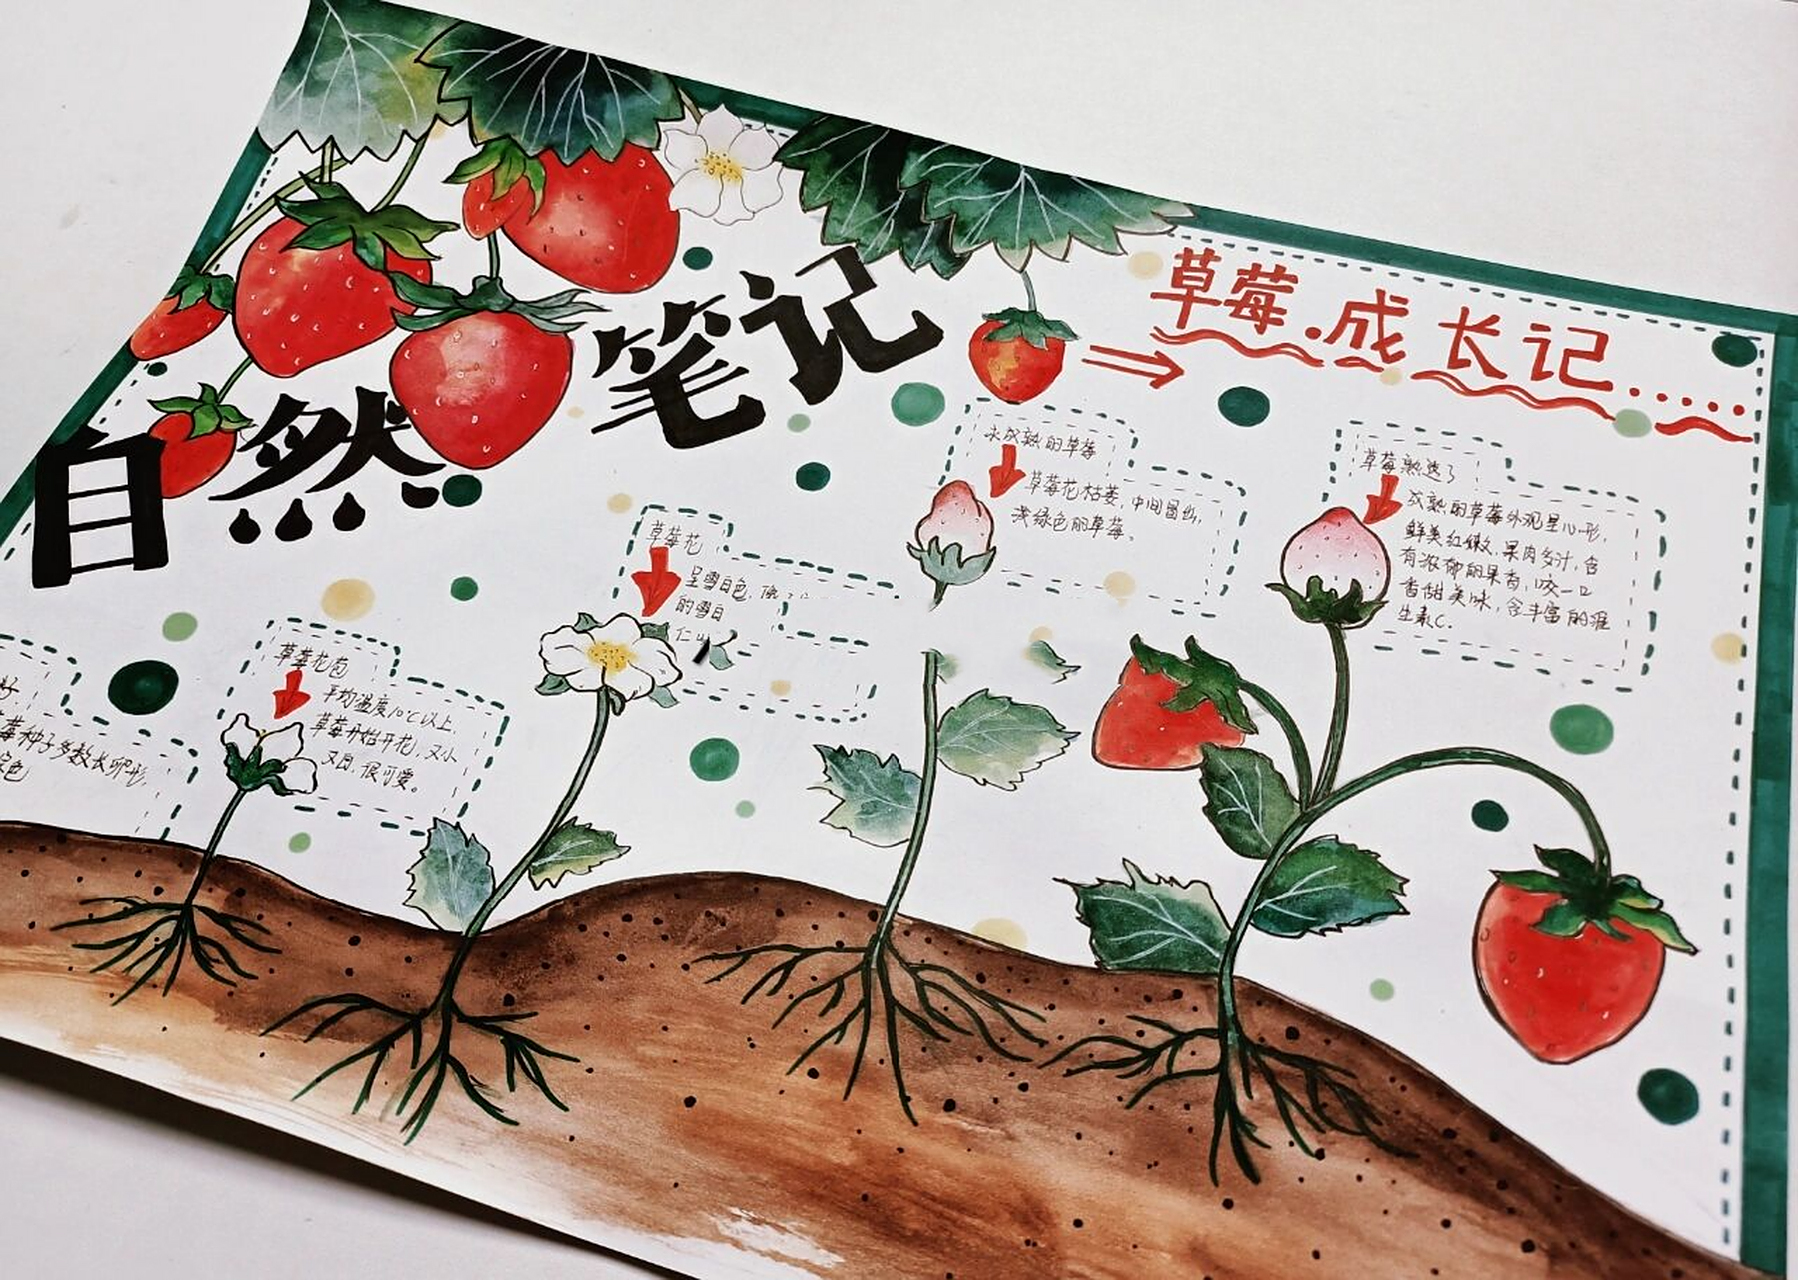 自然笔记
草莓.成长记......
未成熟的草莓
草莓花枯萎,中间冒出,
浅绿色的草莓。
草莓熟透了
成熟的草莓外观呈心形,
鲜美红嫩,果肉多汁,含
有浓郁的果香,咬一口
香甜美味,含丰富的维
生素C.
草莓花
呈雪白色,
的雪白
草莓花苞
平均温度10℃以上
草莓开始开花,又小
又白,很可爱。
莓种子多数长卵形,
色